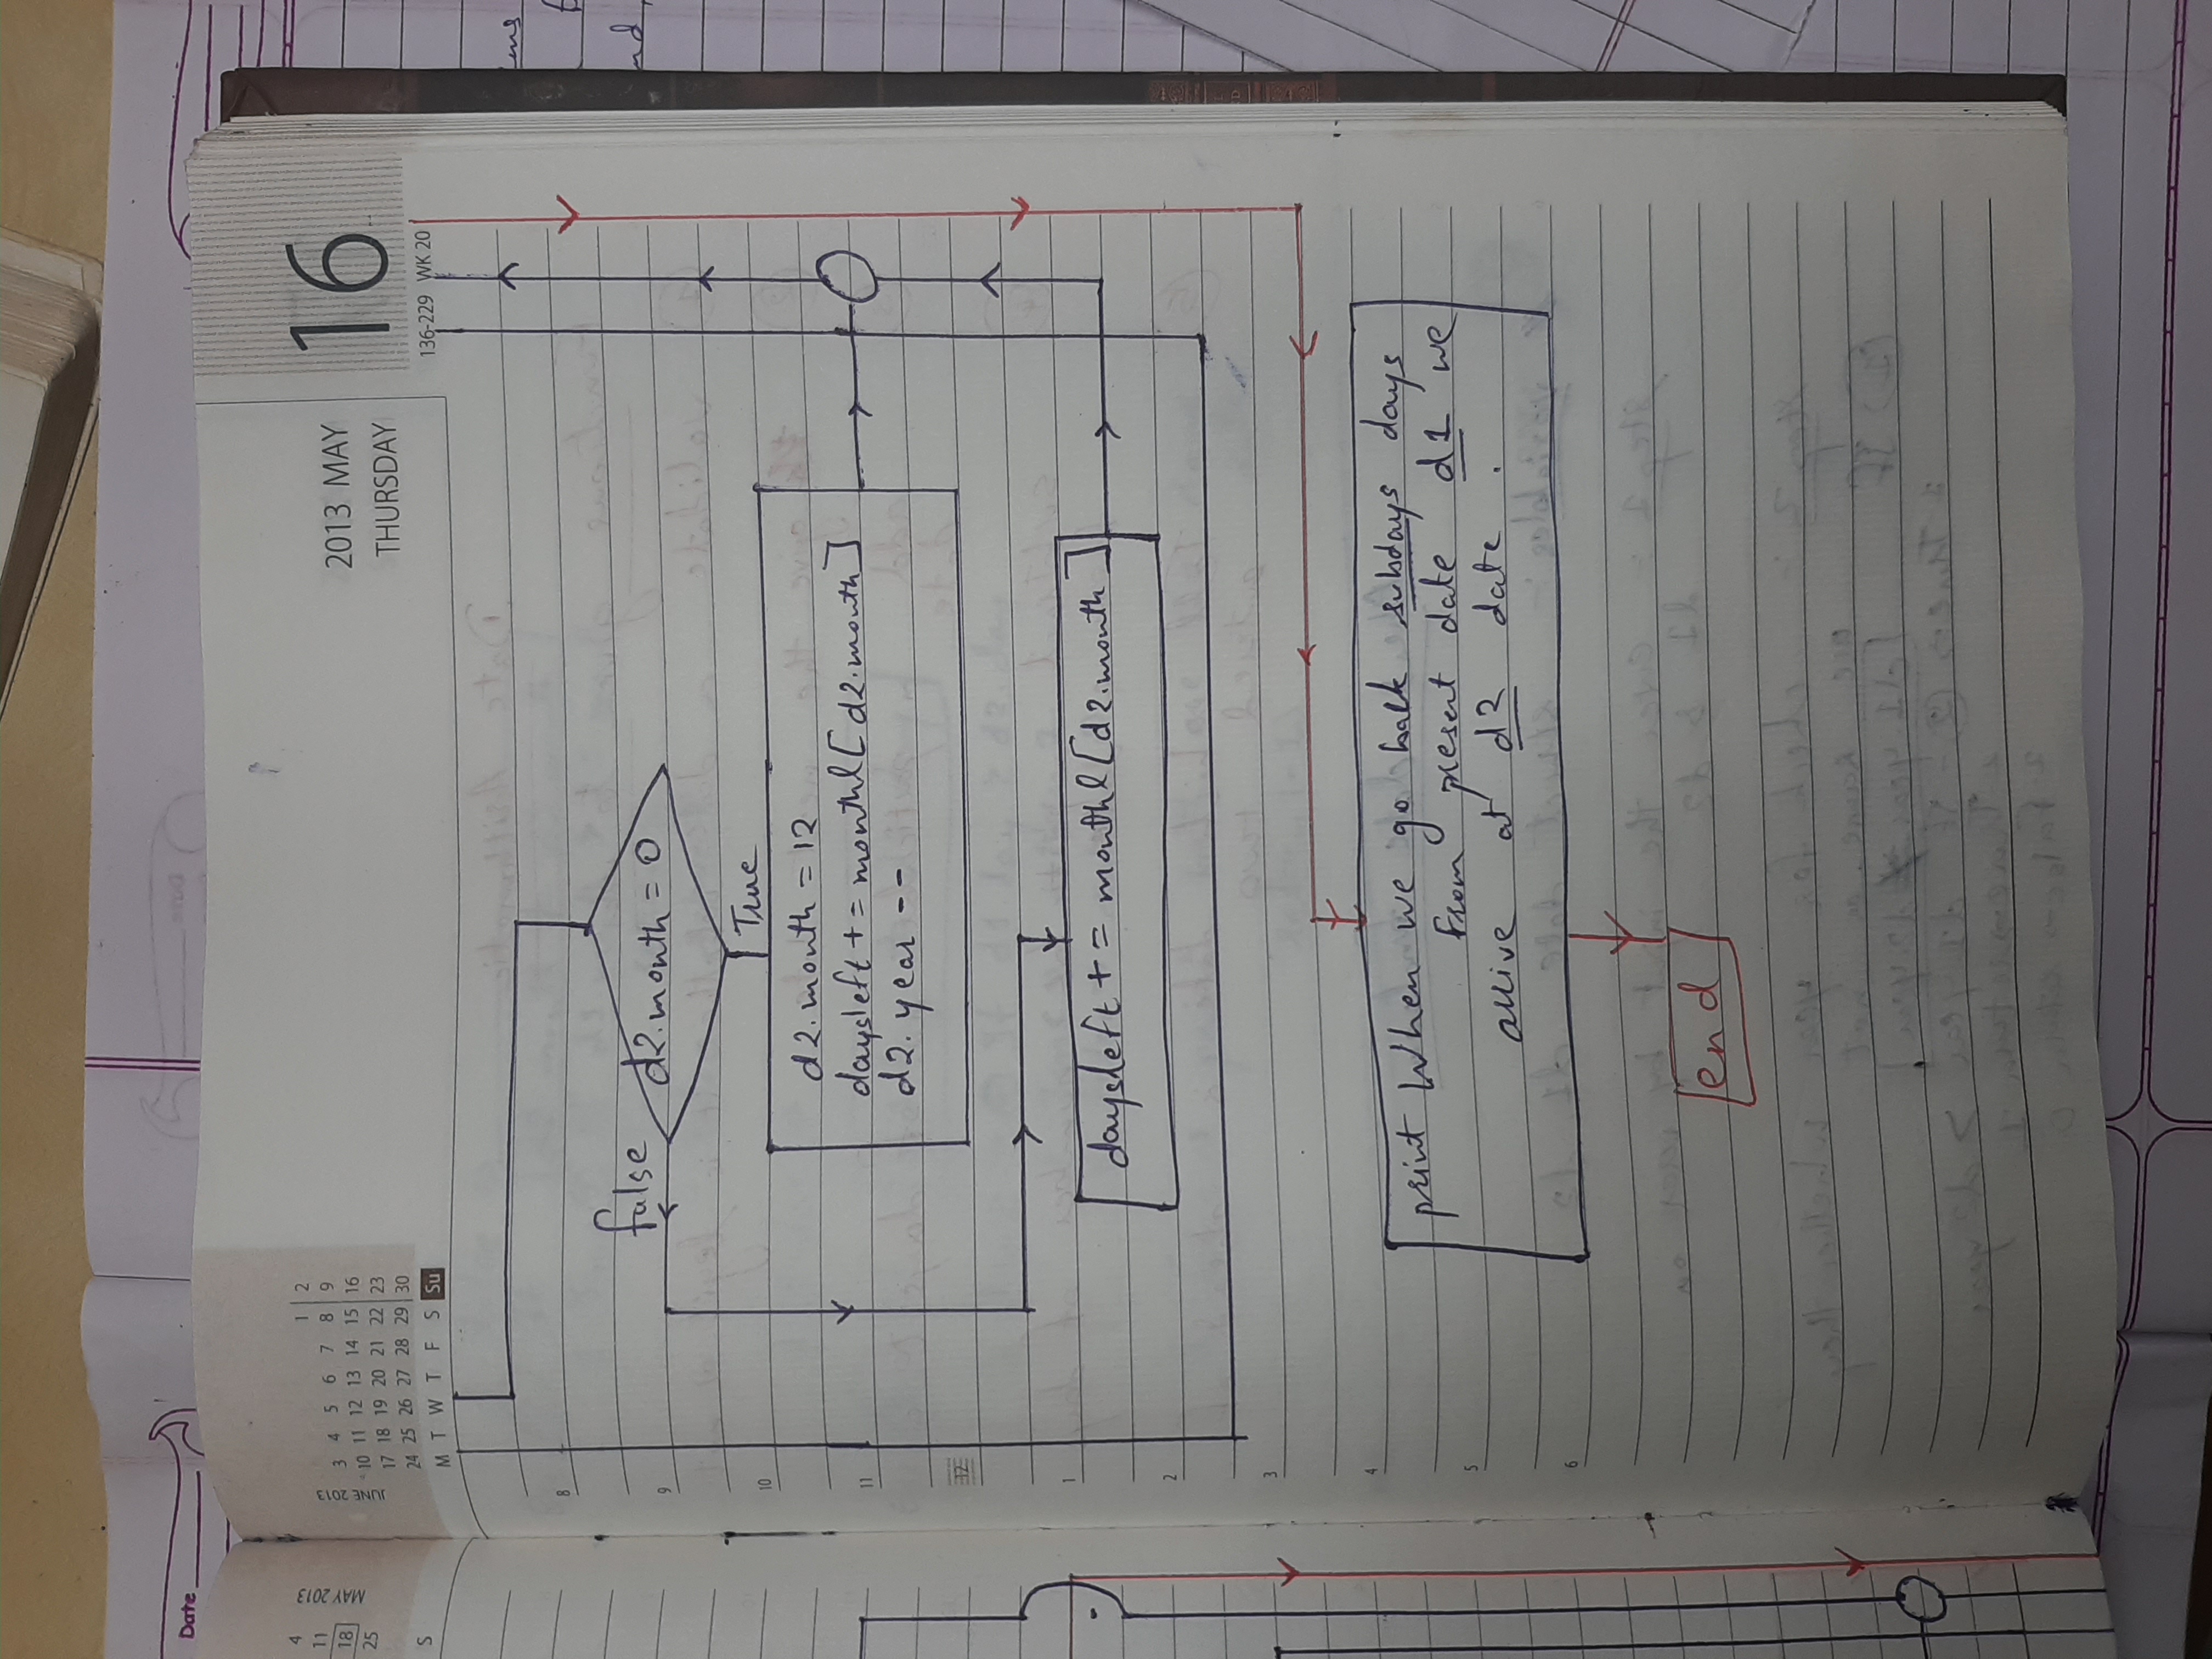 Date
4
11
18
25
MAY 2013
S
JUNE 2013
1 2
3 4 5 6 7 8 9
10 11 12 13 14 15 16
17 18 19 20 21 22 23
24 25 26 27 28 29 30
M T W T F S Su
2013 MAY
THURSDAY
16
136-229 WK 20
8
false
d2.month = 0
9
True
10
d2.month = 12
daysleft += monthl[d2.month]
11
d2.year --
12
1
daysleft += monthl[d2.month]
2
3
4
print When we go back subdays days
from present date d1 we
5
arrive at d2 date .
6
end